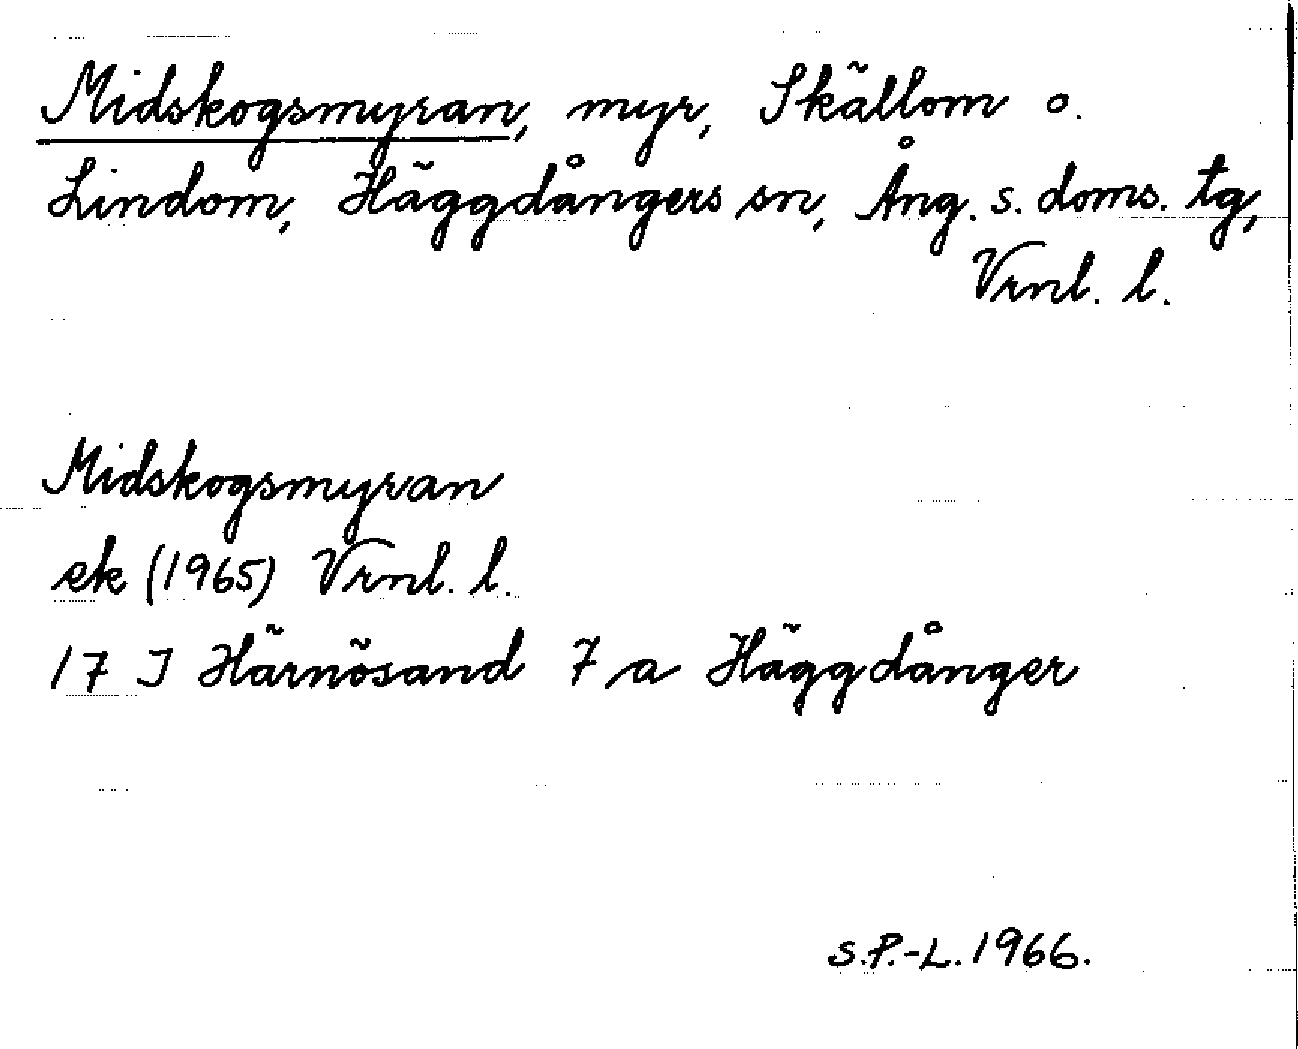 Midskogsmyran, myr, Skällom o.
Lindom, Häggdångers sn, Ång. s. doms. tg,
Vrnl. l.
Midskogsmyran
ek (1965) Vrnl. l.
17 I Härnösand 7 a Häggdånger
S.P.-L. 1966.